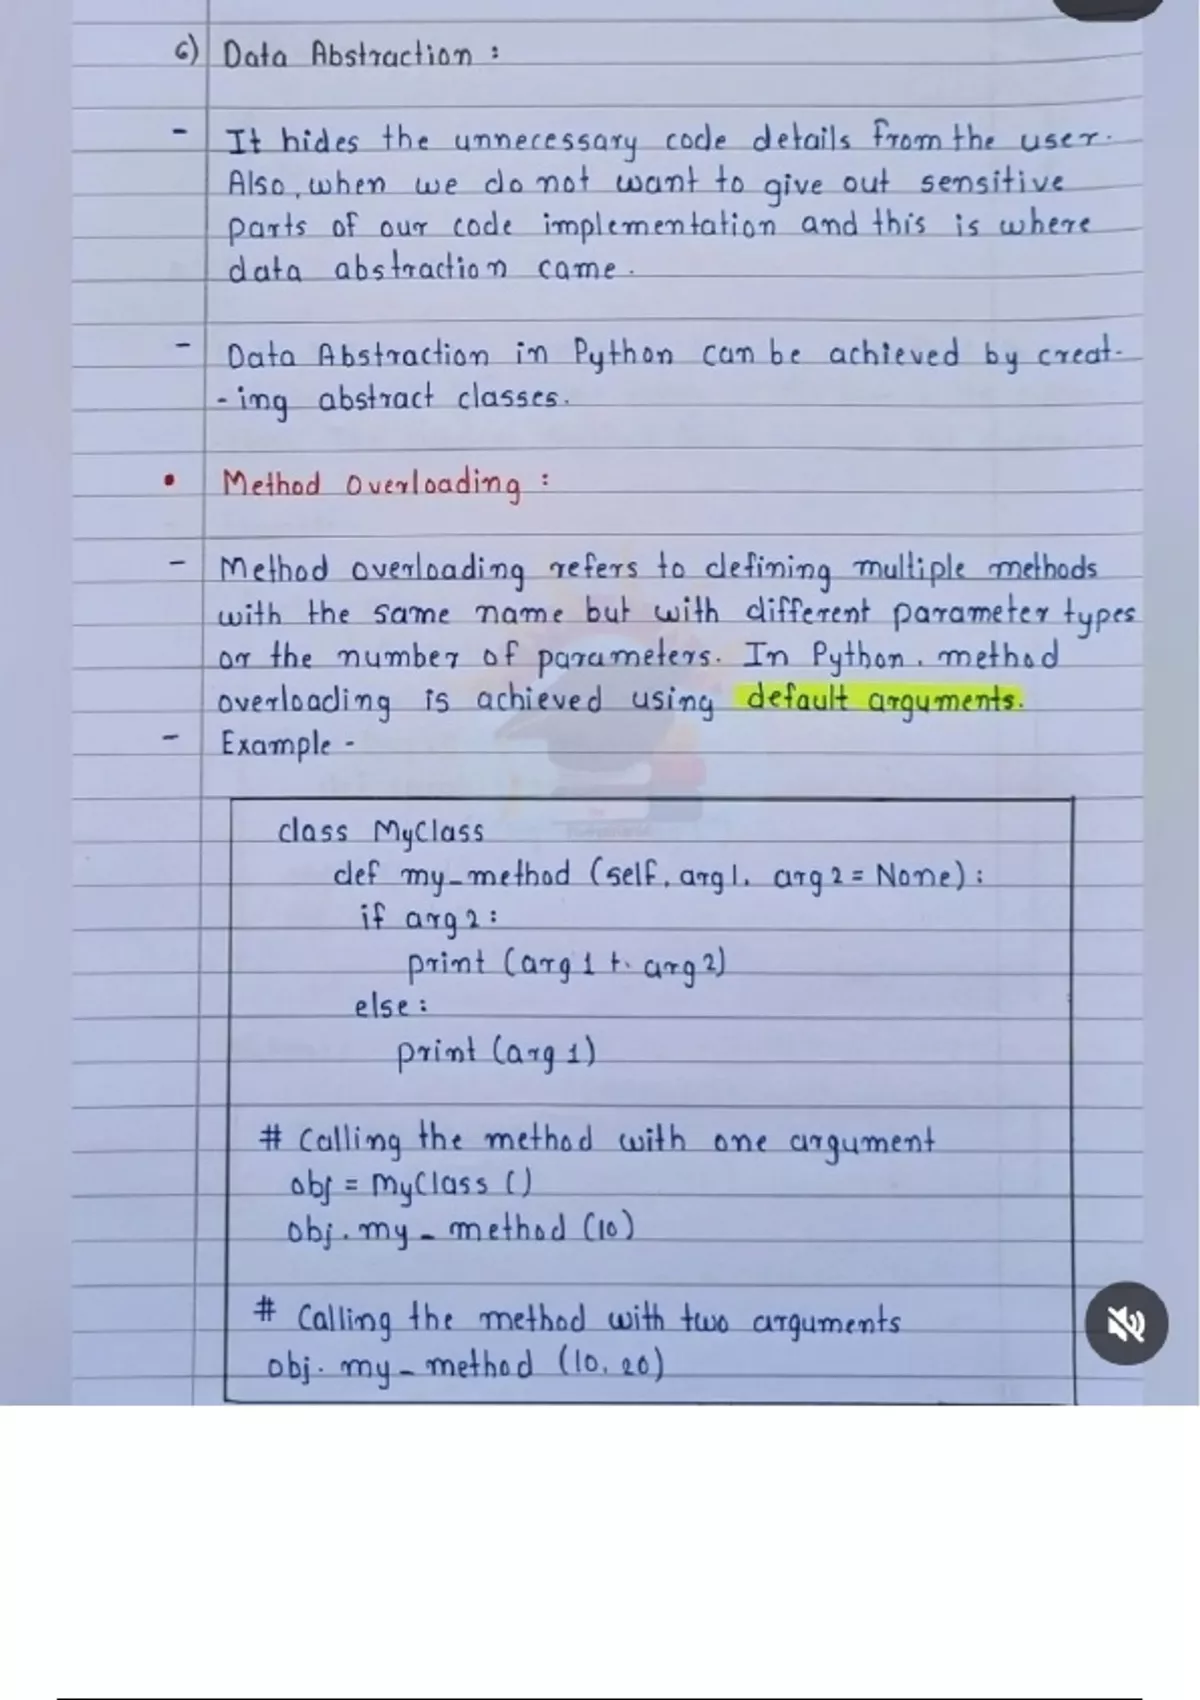 6) Data Abstraction :
- It hides the unnecessary code details from the user.
Also, when we do not want to give out sensitive
parts of our code implementation and this is where
data abstraction came.
- Data Abstraction in Python can be achieved by creat-
-ing abstract classes.
• Method Overloading :
- Method overloading refers to defining multiple methods
with the same name but with different parameter types
or the number of parameters. In Python, method
overloading is achieved using default arguments.
- Example -
class MyClass
def my_method (self, arg1, arg2 = None) :
if arg2 :
print (arg1 + arg2)
else :
print (arg1)
# Calling the method with one argument
obj = MyClass ()
obj.my_method (10)
# Calling the method with two arguments
obj.my_method (10, 20)